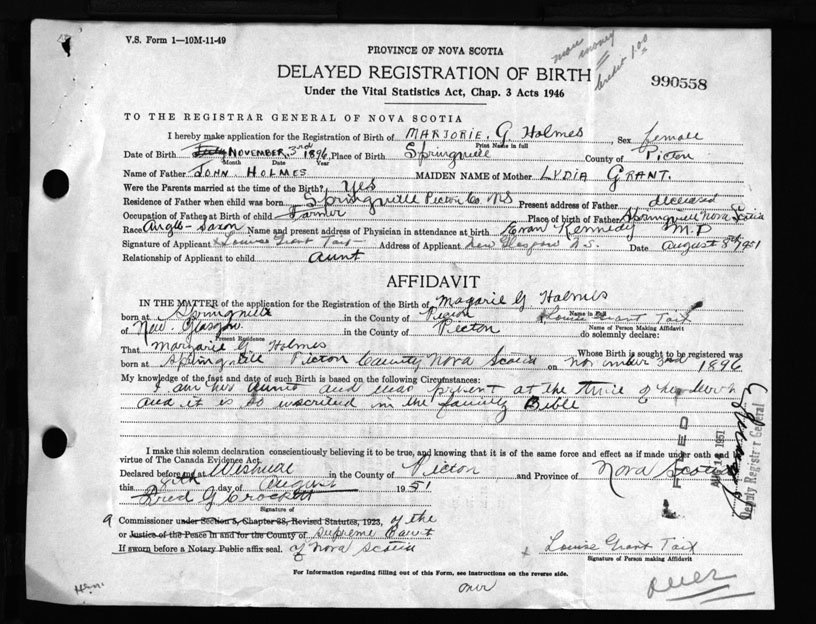 V.S. Form 1—10M-11-49
PROVINCE OF NOVA SCOTIA
more money
credit 1.00
DELAYED REGISTRATION OF BIRTH
990558
Under the Vital Statistics Act, Chap. 3 Acts 1946
TO THE REGISTRAR GENERAL OF NOVA SCOTIA
I hereby make application for the Registration of Birth of MARJORIE. G. Holmes, Sex female
Print Name in full
Date of Birth July NOVEMBER 3rd 1896, Place of Birth Springville County of Picton
Month Date Year
Name of Father JOHN HOLMES MAIDEN NAME of Mother LYDIA GRANT.
Were the Parents married at the time of the Birth? Yes
Residence of Father when child was born Springville Picton Co NS Present address of Father deceased
Occupation of Father at Birth of child Farmer Place of birth of Father Springville Nova Scotia
Race Anglo-Saxon Name and present address of Physician in attendance at birth Evan Kennedy M.D
Signature of Applicant x Louise Grant Tait Address of Applicant New Glasgow N.S. Date August 8th 1951
Relationship of Applicant to child aunt
AFFIDAVIT
IN THE MATTER of the application for the Registration of the Birth of Magarie G Holmes
Name in Full
born at Springville in the County of Picton x Louise Grant Tait
Name of Person Making Affidavit
of New Glasgow in the County of Picton do solemnly declare:
Present Residence
That Marjorie G Holmes Whose Birth is sought to be registered was
born at Springville Picton County Nova Scotia on November 3rd 1896
My knowledge of the fact and date of such Birth is based on the following Circumstances:
I am her Aunt and was present at the time of her birth
and it is so inscribed in the family Bible
I make this solemn declaration conscientiously believing it to be true, and knowing that it is of the same force and effect as if made under oath and by
virtue of The Canada Evidence Act.
Declared before me at Westville in the County of Picton and Province of Nova Scotia
this 8th day of August 1951
Fred G Crockett
Signature of
a Commissioner under Section 5, Chapter 38, Revised Statutes, 1923, of the
or Justice of the Peace In and for the County of Supreme Court
If sworn before a Notary Public affix seal. of Nova Scotia
x Louise Grant Tait
Signature of Person making Affidavit.
For Information regarding filling out of this Form, see instructions on the reverse side.
over
over
FILED
1951
Deputy Registrar General